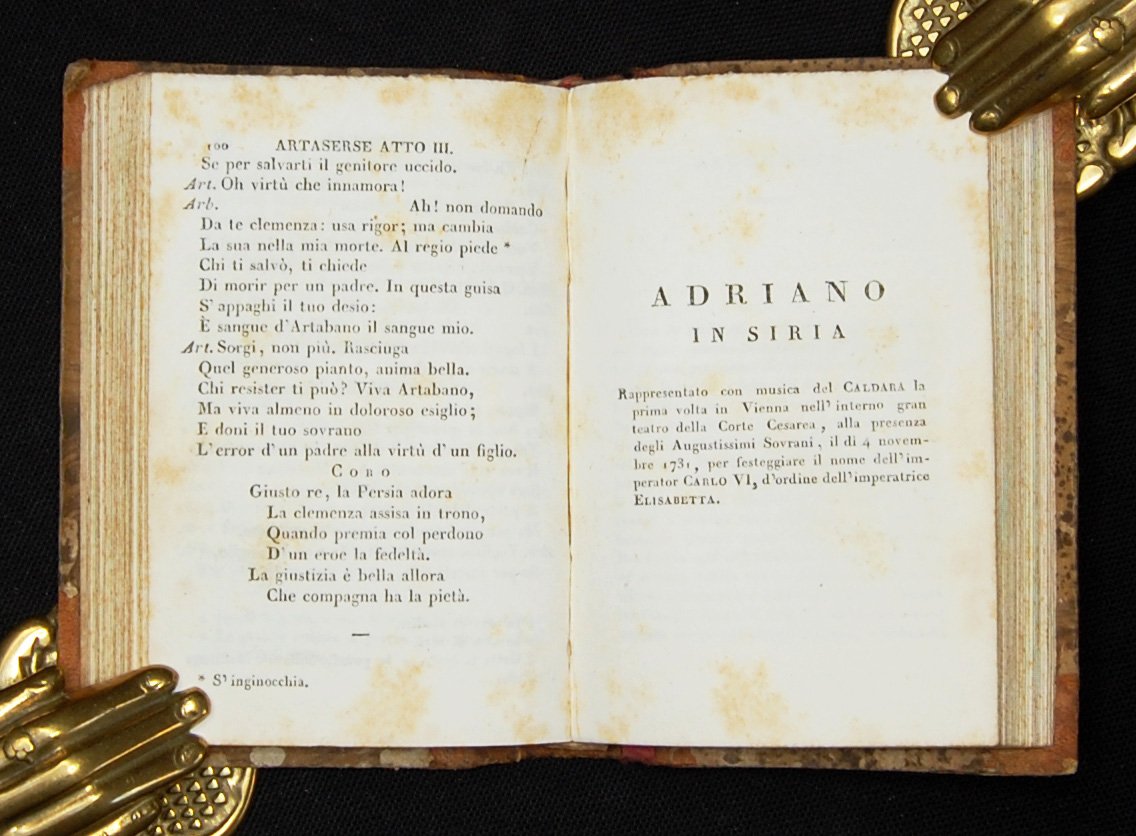 100 ARTASERSE ATTO III.
Se per salvarti il genitore uccido.
Art. Oh virtù che innamora!
Arb. Ah! non domando
Da te clemenza: usa rigor; ma cambia
La sua nella mia morte. Al regio piede *
Chi ti salvò, ti chiede
Di morir per un padre. In questa guisa
S' appaghi il tuo desio:
È sangue d'Artabano il sangue mio.
Art. Sorgi, non più. Rasciuga
Quel generoso pianto, anima bella.
Chi resister ti può? Viva Artabano,
Ma viva almeno in doloroso esiglio;
E doni il tuo sovrano
L'error d'un padre alla virtù d'un figlio.
CORO
Giusto re, la Persia adora
La clemenza assisa in trono,
Quando premia col perdono
D'un eroe la fedeltà.
La giustizia è bella allora
Che compagna ha la pietà.
* S' inginocchia.
ADRIANO
IN SIRIA
Rappresentato con musica del CALDARA la
prima volta in Vienna nell' interno gran
teatro della Corte Cesarea, alla presenza
degli Augustissimi Sovrani, il dì 4 novem-
bre 1731, per festeggiare il nome dell'im-
perator CARLO VI, d'ordine dell'imperatrice
ELISABETTA.